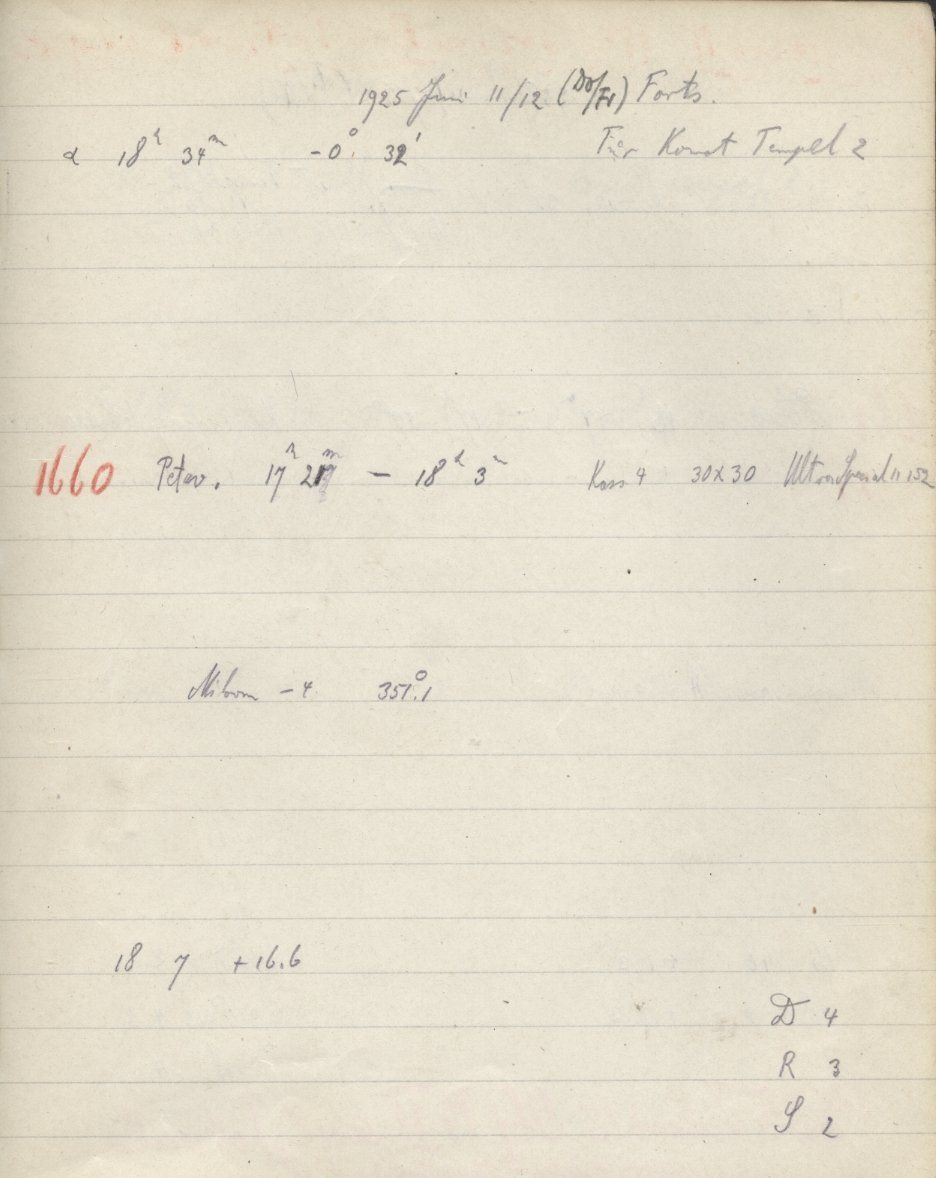 1925 Juni 11/12 (Do/Fr) Forts.
α 18h 34m -0°. 32' Für Komet Tempel 2
1660 Petzv. 17h 21m - 18h 3m Kass 4 30x30 Ultra Spezial 11152
-4. 351°.1
18 7 +16.6
D 4
R 3
S 2